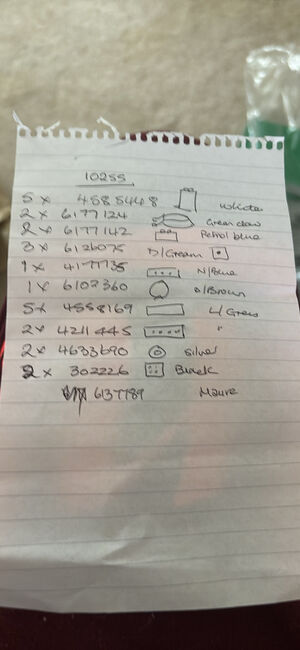 10255
5x 4585448 White
2x 6177124 Green claw
2x 6177142 Petrol blue
3x 6126075 D/Cream
1x 4177735 N/Blue
1x 6102360 D/Brown
5x 4558169 L/Grey
2x 4211445 "
2x 4633690 Silver
2x 302226 Black
6137789 Mauve